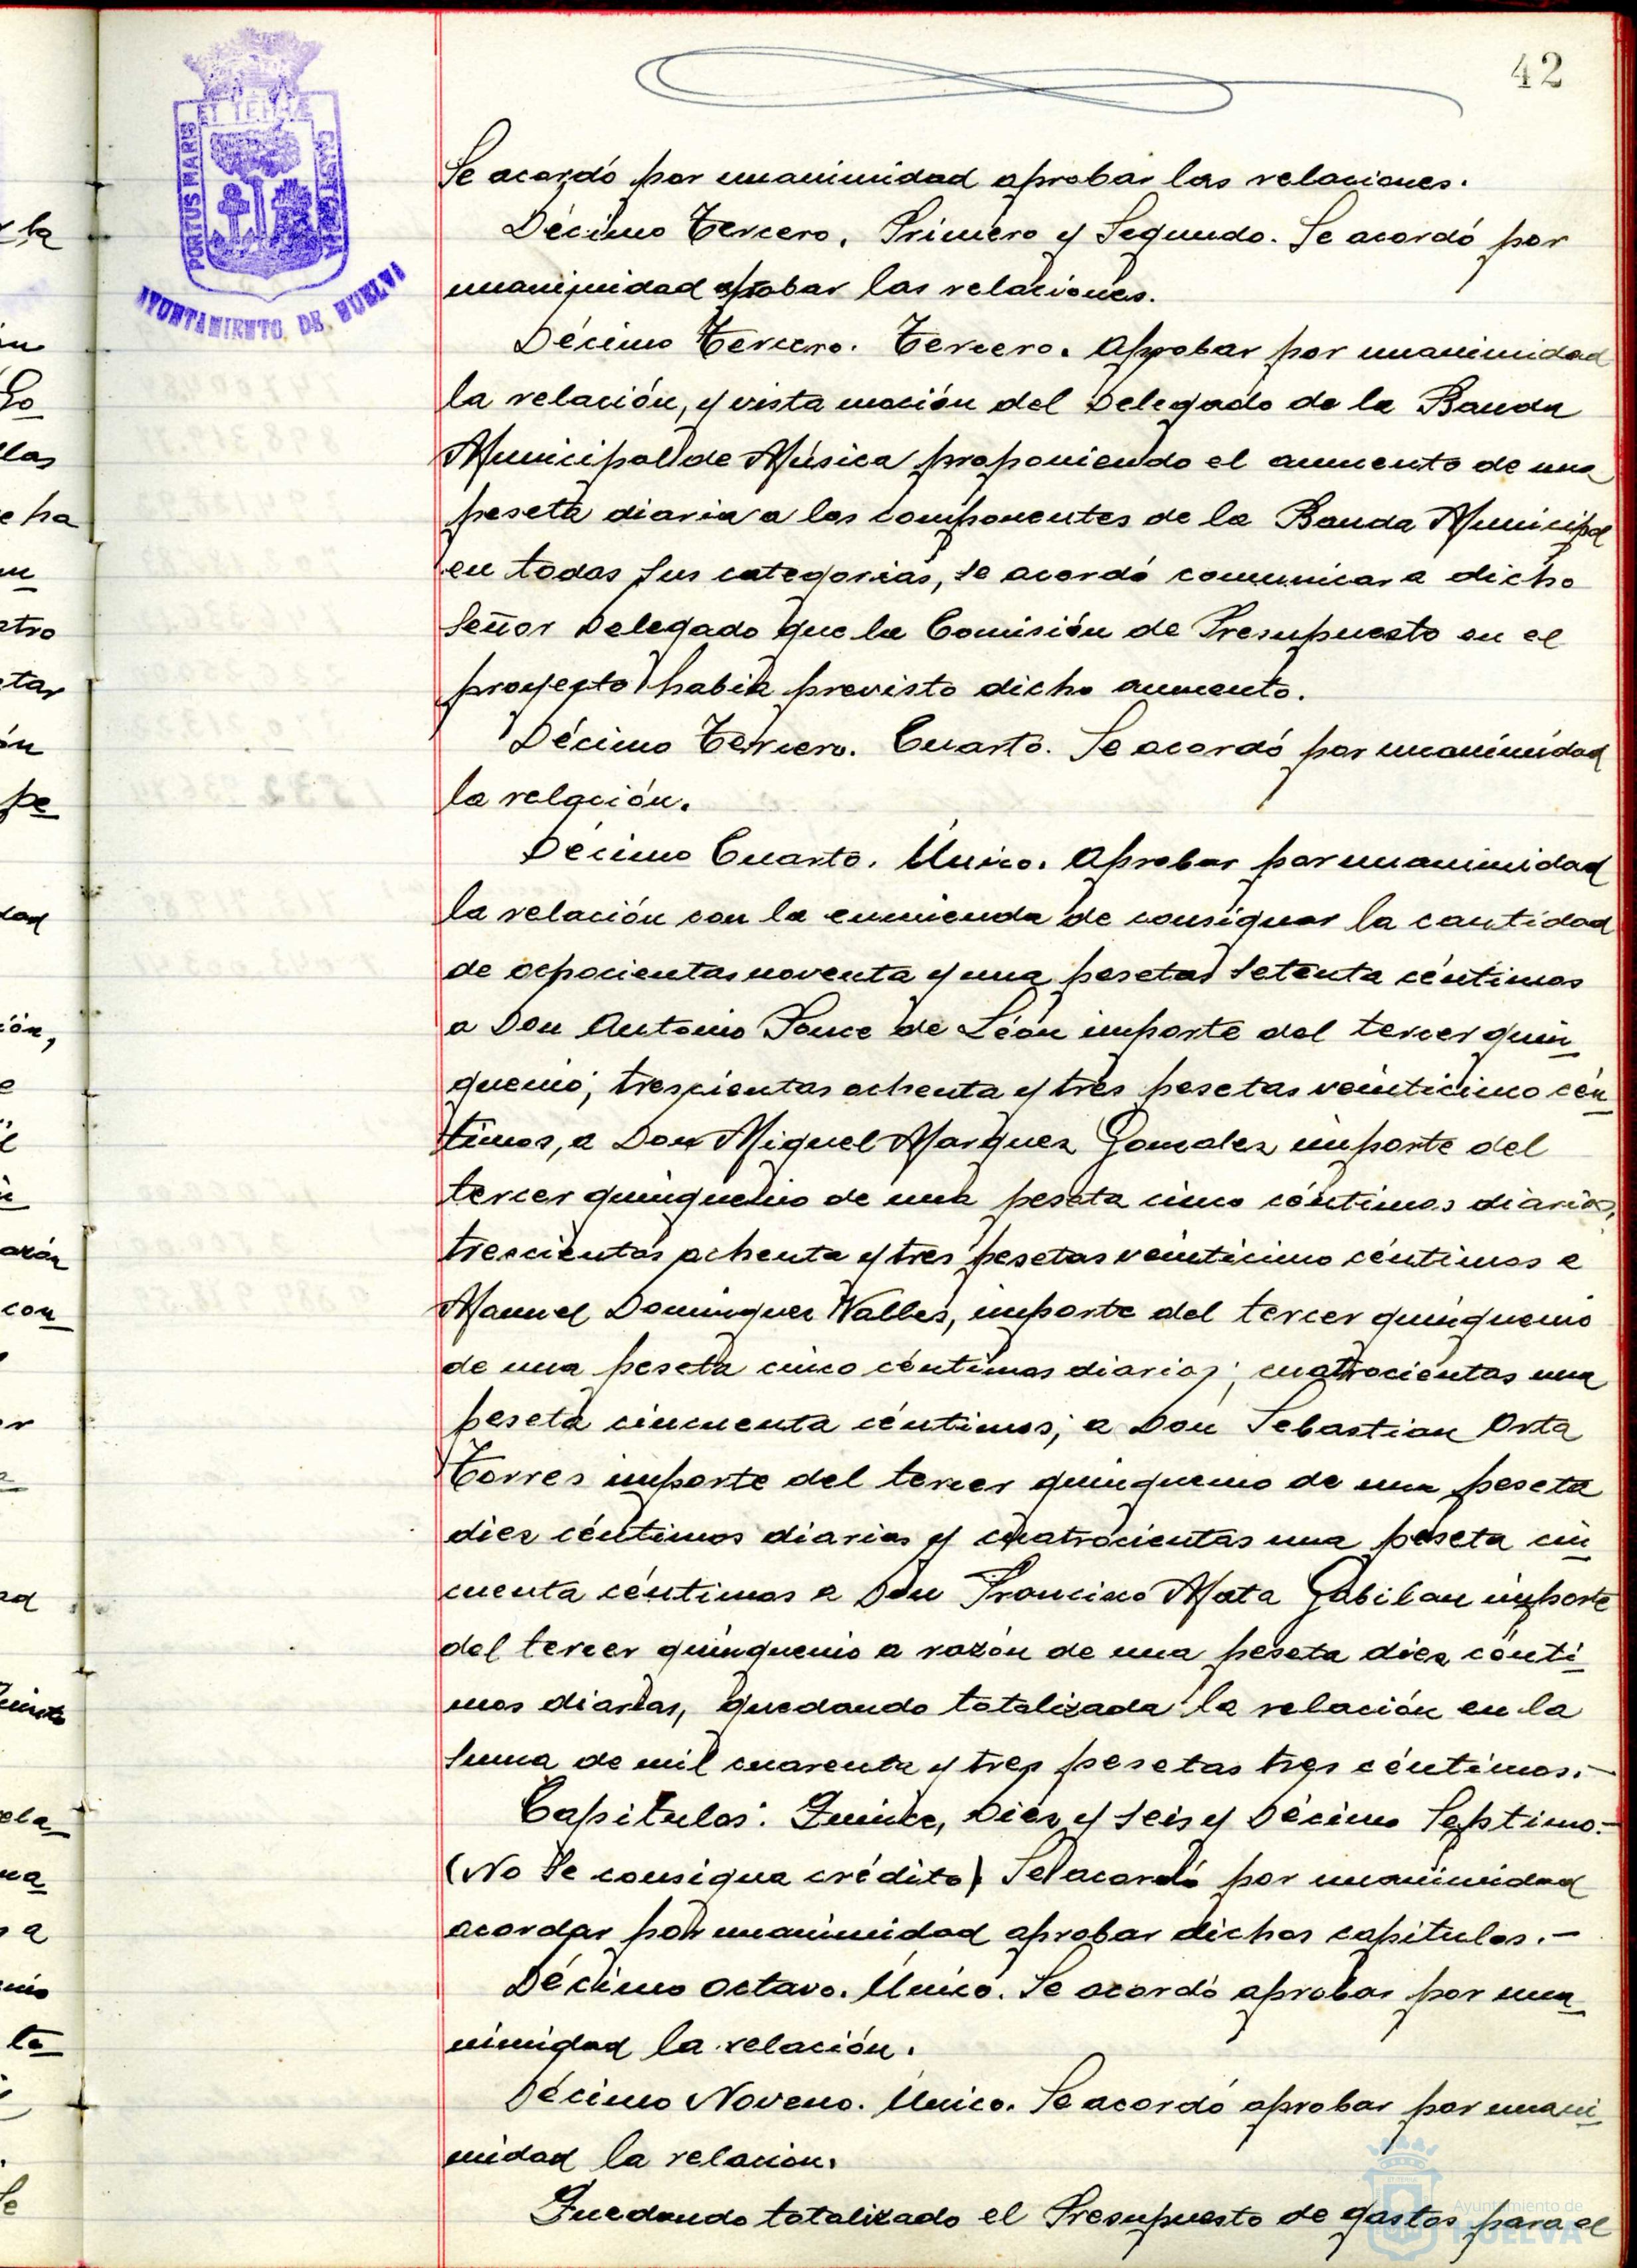 42
PORTUS MARIS
ET TERRÆ
AYUNTAMIENTO DE HUELVA
Se acordó por unanimidad aprobar las relaciones.
Décimo Tercero. Primero y Segundo. Se acordó por
unanimidad aprobar las relaciones.
Décimo Tercero. Tercero. Aprobar por unanimidad
la relación, y vista moción del Delegado de la Banda
Municipal de Música proponiendo el aumento de una
peseta diaria a los componentes de la Banda Municipal
en todas sus categorias, se acordó comunicar a dicho
Señor Delegado que la Comisión de Presupuesto en el
proyecto habia previsto dicho aumento.
Décimo Tercero. Cuarto. Se acordó por unanimidad
la relación.
Décimo Cuarto. Único. Aprobar por unanimidad
la relación con la enmienda de consignar la cantidad
de ochocientas noventa y una pesetas setenta céntimos
a Don Antonio Ponce de León importe del tercer quin
quenio; trescientas ochenta y tres pesetas veinticinco cén
timos, a Don Miguel Marquez Gonzalez importe del
tercer quinquenio de una peseta cinco céntimos diarios,
trescientas ochenta y tres pesetas veinticinco céntimos a
Manuel Dominguez Valles, importe del tercer quinquenio
de una peseta cinco céntimos diarios; cuatrocientas una
peseta cincuenta céntimos; a Don Sebastian Orta
Torres importe del tercer quinquenio de una peseta
diez céntimos diarios y cuatrocientas una peseta cin
cuenta céntimos a Don Francisco Mata Gabilan importe
del tercer quinquenio a razón de una peseta diez cénti
mos diarias, quedando totalizada la relación en la
suma de mil cuarenta y tres pesetas tres céntimos.-
Capitulos: Quince, Diez y seis y Décimo Septimo.-
(No se consigna crédito) Se acordó por unanimidad
acordar por unanimidad aprobar dichos capitulos.-
Décimo Octavo. Único. Se acordó aprobar por una
nimidad la relación.
Décimo Noveno. Único. Se acordó aprobar por unani
midad la relación.
Quedando totalizado el Presupuesto de gastos para el
Ayuntamiento de
HUELVA